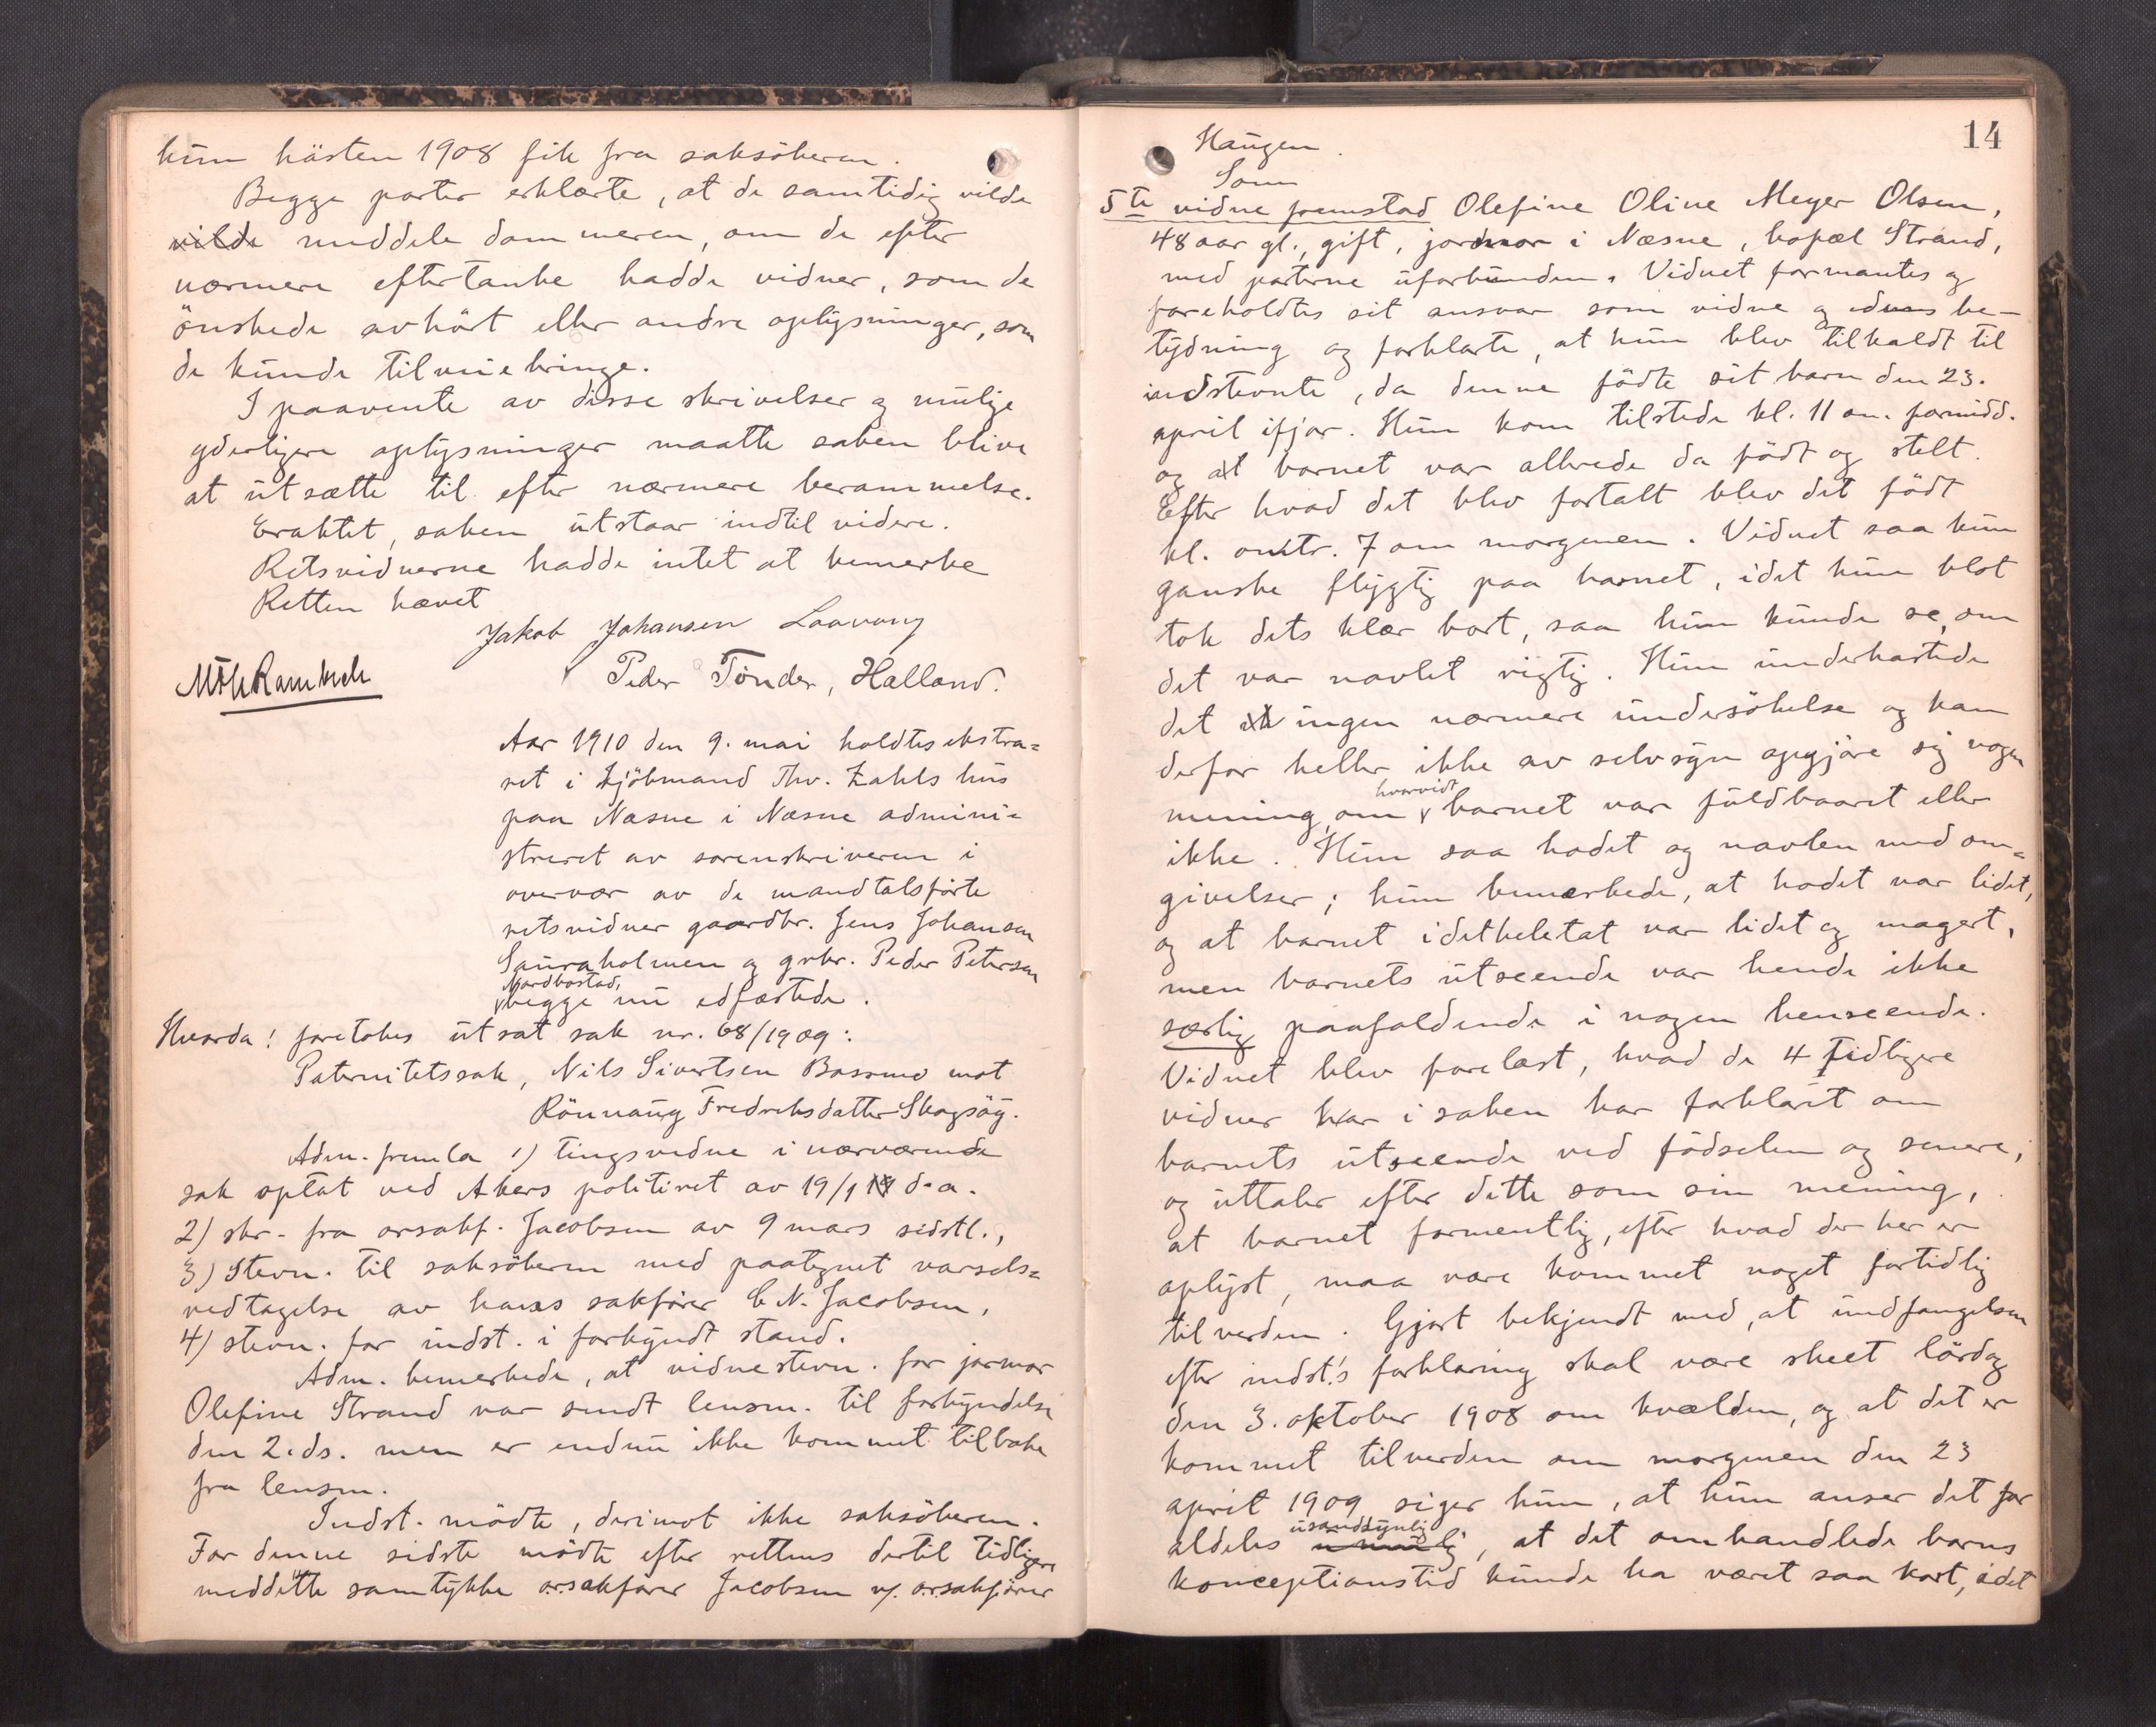 hun hösten 1908 fik fra saksökeren.
Begge parter erklærte, at de samtidig vilde
vilde meddele dommeren, om de efter
nærmere eftertanke hadde vidner, som de
önskede avhört eller andre oplysninger, som
de kunde tilveiebringe.
I paavente av disse skrivelser og mulige
yderligere oplysninger maatte saken blive
at utsætte til efter nærmere berammelse.
Eraktet, saken utstaar indtil videre.
Retsvidnerne hadde intet at bemerke
Retten hævet
Jakob Johansen Laavong
Peder Tönder, Halland.
Aar 1910 den 9. mai holdtes ekstra=
ret i kjöbmand Thv. Zahls hus
paa Næsne i Næsne admini=
streret av sorenskriveren i
overvær av de mandtalsförte
retsvidner gaardbr. Jens Johansen
Sauraholmen og grbr. Peder Petersen
Nordbostad,
begge nu edfæstede.
Hvorda! foretokes utsat sak nr. 68/1909:
Paternitetssak, Nils Sivertsen Bossmo mot
Rönnaug Fredriksdatter Skogsög.
Adm. fremla 1) tingsvidne i nærværende
sak optat ved Akers politiret av 19/1 d.a.
2) skr. fra orsakf. Jacobsen av 9 mars sidstl.,
3) Stevn. til saksökeren med paategnet varsels=
vedtagelse av hans sakförer C N. Jacobsen,
4) stevn. for indst. i forkyndt stand.
Adm. bemerkede, at vidnestevn. for jormor
Olefine Strand var sendt lensm. til forkyndelse
den 2. ds. men er endnu ikke kommet tilbake
fra lensm.
Indst. mödte, derimot ikke saksökeren.
For denne sidste mödte efter rettens dertil tidligere
meddelte samtykke orsakförer Jacobsen v/ orsakförer
14
Haugen.
Som
5te vidne fremstod Olefine Oline Meyer Olsen,
48 aar gl., gift, jordmor i Næsne, bopæl Strand,
med parterne uforbunden. Vidnet formantes og
foreholdtes sit ansvar som vidne og edens be-
tydning og forklarte, at hun blev tilkaldt til
indstevnte, da denne födte sit barn den 23.
april ifjor. Hun kom tilstede kl. 11 om formidd.
og at barnet var allerede da födt og stelt.
Efter hvad det blev fortalt blev det födt
kl. omtr. 7 om morgenen. Vidnet saa kun
ganske flygtig paa barnet, idet hun blot
tok dets klær bort, saa hun kunde se, om
det var navlet rigtig. Hun underkastede
det ingen nærmere undersökelse og kan
derfor heller ikke av selvsyn opgjöre sig nogen
hvorvidt
mening, om barnet var fuldbaaret eller
ikke. Hun saa hodet og navlen med om=
givelser; hun bemærkede, at hodet var lidet,
og at barnet idetheletat var lidet og magert,
men barnets utseende var hende ikke
særlig paafaldende i nogen henseende.
Vidnet blev forelæst, hvad de 4 tidligere
vidner i saken har forklart om
barnets utseende ved födselen og senere,
og uttaler efter dette som sin mening,
at barnet formentlig, efter hvad der her er
oplyst, maa være kommet noget fortidlig
til verden. Gjort bekjendt med, at undfangelsen
efter indst's forklaring skal være skeet lördag
den 3. oktober 1908 om kvælden, og at det er
kommet tilverden om morgenen den 23
april 1909 siger hun, at hun anser det for
usandsynlig
aldeles umulig, at det omhandlede barns
konceptionstid kunde ha været saa kort, idet